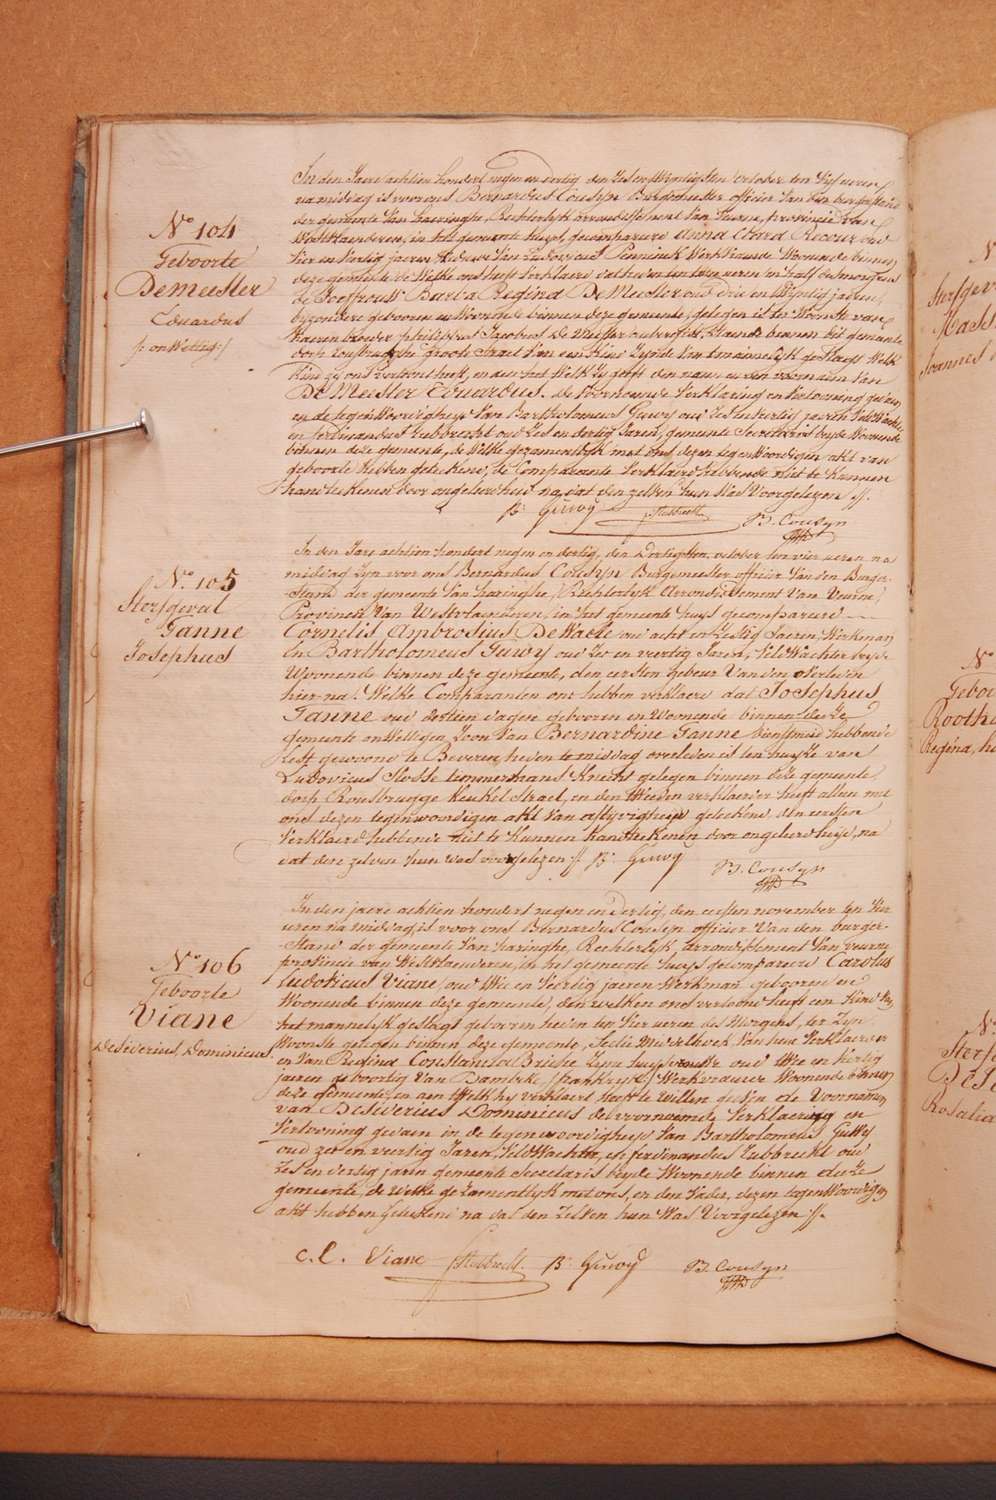 N° 104
Geboorte
Demeester
Eduardus
/: onWettig :/
In den Jaere achtien hondert negen en dertig, den Zes en twyntigsten october ten Vyf ueren
namiddag is voor ons Bernardus Cousyn Burgemeester officier Van den burgerstand
der gemeente Van haeringhe, Rechterlyk arrondissement Van Veurne, provincie Van
Westvlaenderen, in het gemeente huys, gecompareerd Anna Clara Recour oud
Vier en Veertig jaeren Weduwe Van Ludovicus Penninck Werkvrauwe Woonende binnen
deze gemeente de Welke ons heeft Verklaerd dat heden ten twee ueren en half des morgens
de Joeffrouw Barba Regina De Meester oud drie en twyntig jaeren,
byzondere gebooren en Woonende binnen deze gemeente, gelegen is ter Woonste van
haeren broeder philippus Jacobus De Meester staende binnen dit gemeente
dorp Rousbrugghe groote Straet Van een Kind Zynde Van t mannelyk geslagt Welk
Kind zy ons Vertoont heeft, en aen het Welk Zy geeft den naem en den voornaem Van
De Meester Eduardus. de Voornoemde Verklaering en Vertooning gedaen
in de tegenwoordigheyd Van Bartholomeus Guwy oud Zes en Veertig jaeren VeldWachter,
en ferdinandus Lubbrecht oud Zes en dertig Jaeren, gemeente Secretaris beyde Woonende
binnen deze gemeente, de Welke gezamentlyk met ons dezen tegenWoordigen akt van
geboorte hebben geteekend, de Comparante Verklaerd hebbende niet te Kunnen
handteekenen door ongeleerdheid na dat den zelven hun Was Voorgelezen //.
B: Guwy F Lubbrecht B. Cousyn
N° 105
Sterfgeval
Fanne
Josephus
In den Jare achtien hondert negen en dertig, den Dertigsten october ten vier ueren na
middag Zyn voor ons Bernardus Cousyn Burgemeester officier Van den Burger-
-Stand der gemeente Van haringhe, Rechterlyk Arrondissement Van Veurne,
Provincie Van Westvlaenderen, in het gemeente huys gecompareerd
Cornelis Ambrosius DeWaele oud acht en Zestig Jaeren, Werkman
en Bartholomeus Guwy oud Zes en veertig Jaren, VeldWachter beyde
Woonende binnen deze gemeente, den eersten gebeur Van den overleden
hier na. Welke Comparanten ons hebben verklaerd dat Josephus
Fanne oud dertien dagen gebooren en Woonende binnen deeze
gemeente onWettigen Zoon Van Bernardine Fanne dienstmeid hebbende
lest gewoond te Beveren, heden te middag overleden is ten huyze van
Ludovicus Flosse timmermans Knecht gelegen binnen deze gemeente
dorp Rousbrugge Keukel Straet, en den tweeden verklaerder heeft alleen met
ons dezen tegenwoordigen akt Van aflyvigheyd geteekend, den eersten
Verklaerd hebbende niet te Kunnen handteekenen door ongeleerdheyd, na
dat deze zelven hun was voorgelezen // B: Guwy B. Cousyn
N° 106
Geboorte
Viane
Desiverius, Dominicus.
In den jaere achtien hondert negen en Dertig, den eersten november ten Vier
ueren na middag is voor ons Bernardus Cousyn officier Van den burger-
-Stand der gemeente Van haringhe, Rechterlyk arrondissement Van veurne
provincie van Westvlaenderen, in het gemeente huys gecompareerd Carolus
Ludovicus Viane, oud drie en Veertig jaeren Werkman, gebooren en
Woonende binnen deze gemeente, den welken ons vertoond heeft een Kind Van
het mannelyk geslagt gebooren heden ten Vier ueren des Morgens, ter Zyn
Woonste gelegen binnen deze gemeente, Sectie Middelhoek Van hem Verklaerer
en Van Regina Constantia Briche Zyne huysvrouwe oud drie en Veertig
jaeren geboortig Van Bambeke, frankryk, Werkvrauwe Woonende binnen
deze gemeente, en aen Welk hy verklaerd heeft te willen geven de Voornamen
van Desiverius Dominicus de voornoemde Verklaering en
Vertooning gedaen in de tegenwoordigheyd Van Bartholomeus Guwy
oud Zes en veertig Jaren, VeldWachter, en ferdinandus Lubbrecht oud
Zes en dertig jaren gemeente Secretaris beyde Woonende binnen deeze
gemeente, de welke gezamentlyk met ons, en den Vader, dezen tegenWoordigen
akt hebben geteekend na dat den Zelven hun Was Voorgelezen //.
C. L. Viane F Lubbrecht B: Guwy B. Cousyn
N°
Sterfgev
Joannes
N°
Geboo
Rootha
Regina, h
N°
Sterf
Rosalia